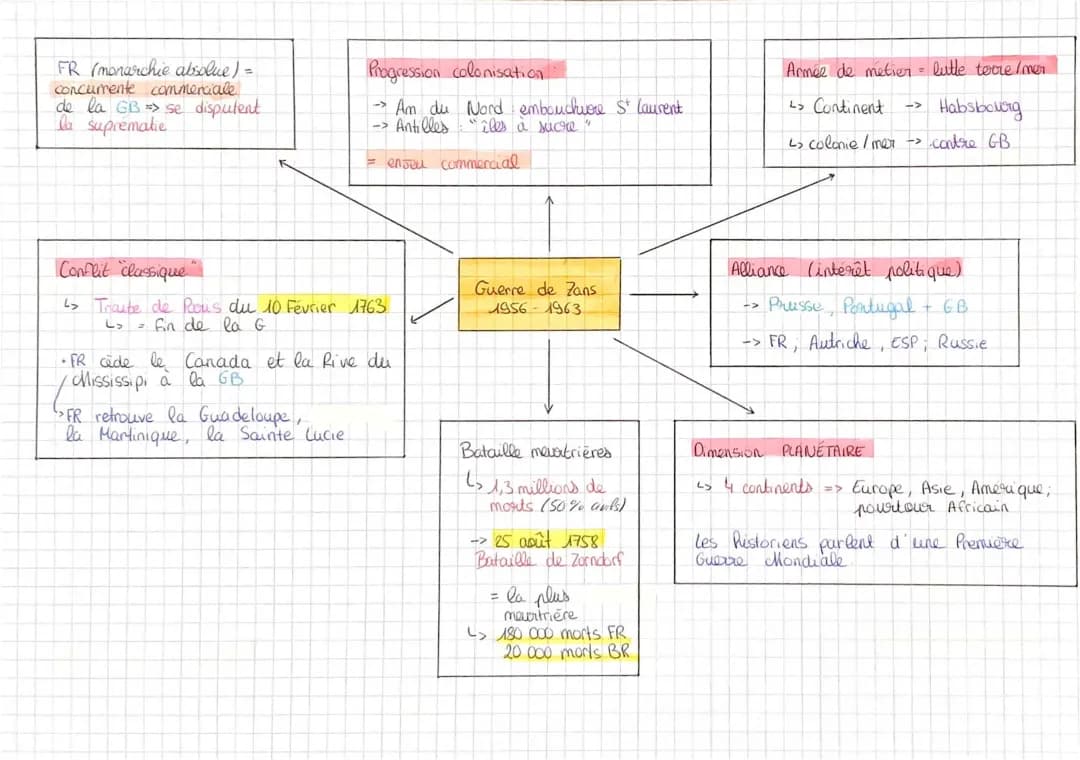 FR (monarchie absolue) =
concurrente commerciale
de la GB => se disputent
la suprématie
Progression colonisation
-> Am du Nord : embouchure St Laurent
-> Antilles : "îles à sucre"
= enjeu commercial
Armée de métier = lutte terre/mer
↳ Continent -> Habsbourg
↳ colonie/mer -> contre GB
Conflit "classique"
↳ Traité de Paris du 10 Février 1763
↳ = Fin de la G
• FR cède le Canada et la Rive du
Mississipi à la GB
↳ FR retrouve la Guadeloupe,
la Martinique, la Sainte Lucie
Guerre de 7ans
1956 - 1963
Alliance (intérêt politique)
-> Prusse, Portugal + GB
-> FR ; Autriche , ESP ; Russie
Bataille meurtrières
↳ 1,3 millions de
morts (50% civils)
-> 25 août 1758
Bataille de Zorndorf
= la plus
meurtrière
↳ 180 000 morts FR
20 000 morts BR
Dimension PLANÉTAIRE
↳ 4 continents => Europe, Asie, Amérique;
pourtour Africain
Les historiens parlent d'une Première
Guerre Mondiale.